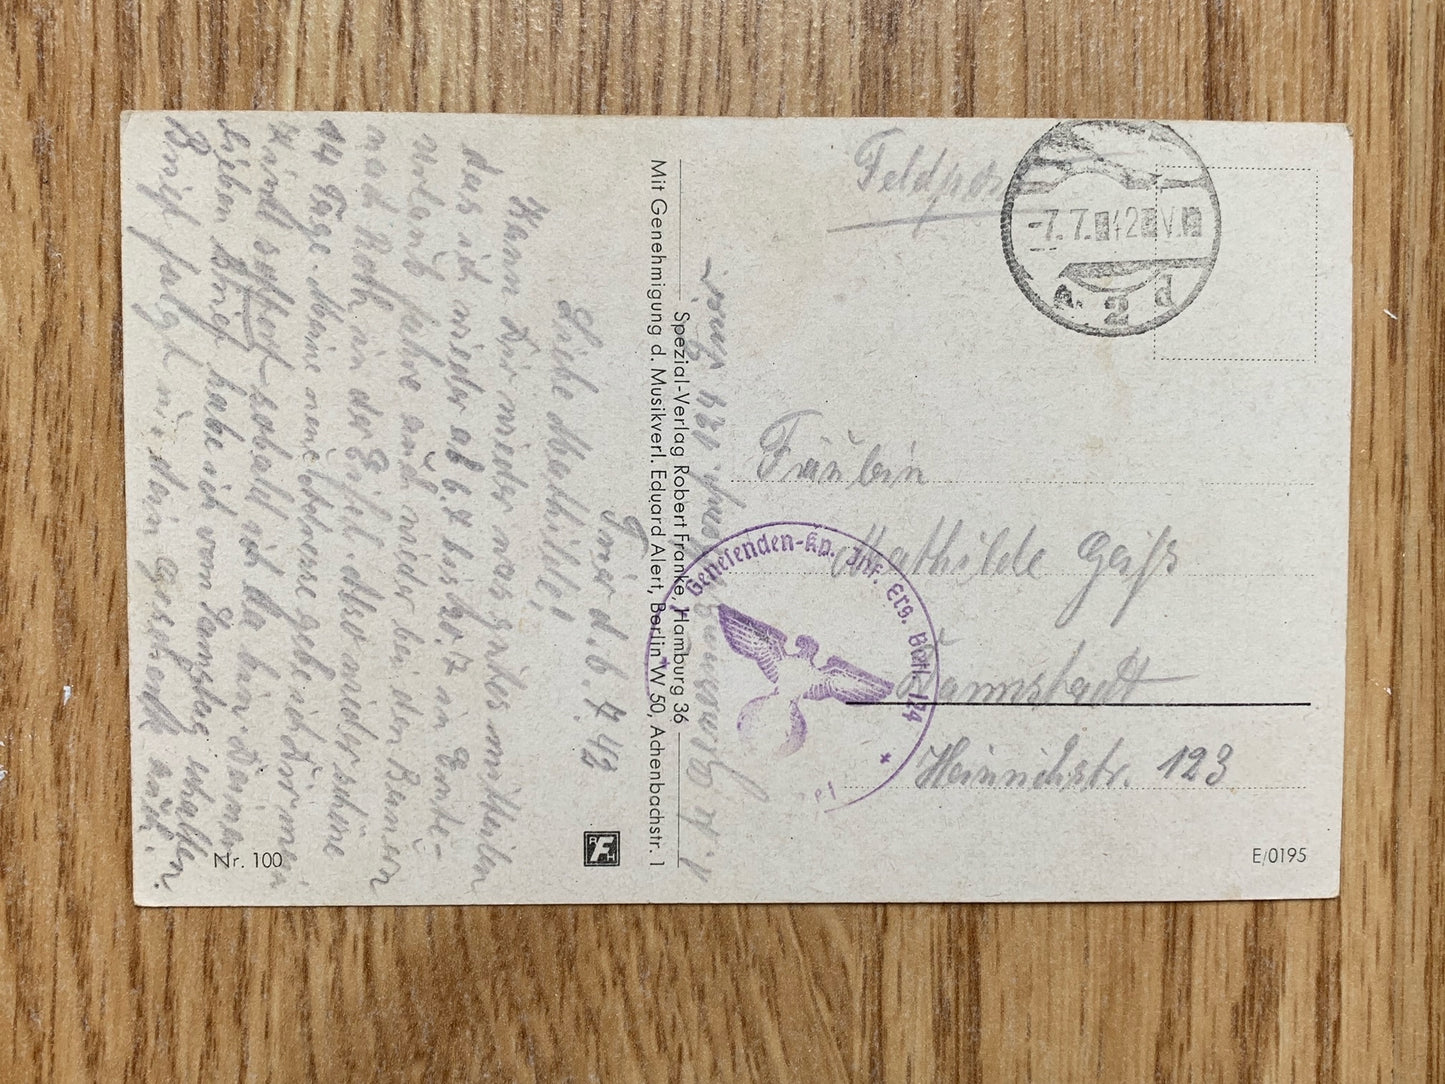 Feldpost
-7.7.42
V.
a. 2 d
Fräulein
Mathilde Geiß
Darmstadt
Heinrichstr. 123
E/0195
Genesenden-Kp. Inf. Ers. Batl. 124
Spezial-Verlag Robert Franke, Hamburg 36
Mit Genehmigung d. Musikverl. Eduard Alert, Berlin W 50, Achenbachstr. 1
RFH
Nr. 100
Trier d. 6.7.42
Liebe Mathilde!
Kann Dir wieder was gutes mitteilen
das ich wieder ab 6.7 bis 20.7 in Ernte-
urlaub fahre auch wieder bei den Bauer
nach Roth in der Eifel. Also wieder schöne
14 Tage. Meine neue Adresse gebe ich Dir mein
Kind sofort sobald ich da bin. Deinen
lieben Brief habe ich vom Samstag erhalten.
Brief folgt